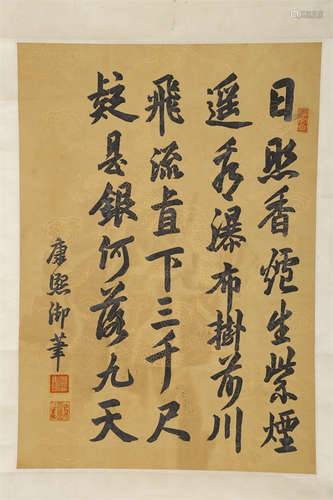 日照香爐生紫煙
遥看瀑布掛前川
飛流直下三千尺
疑是銀河落九天
康熙御筆